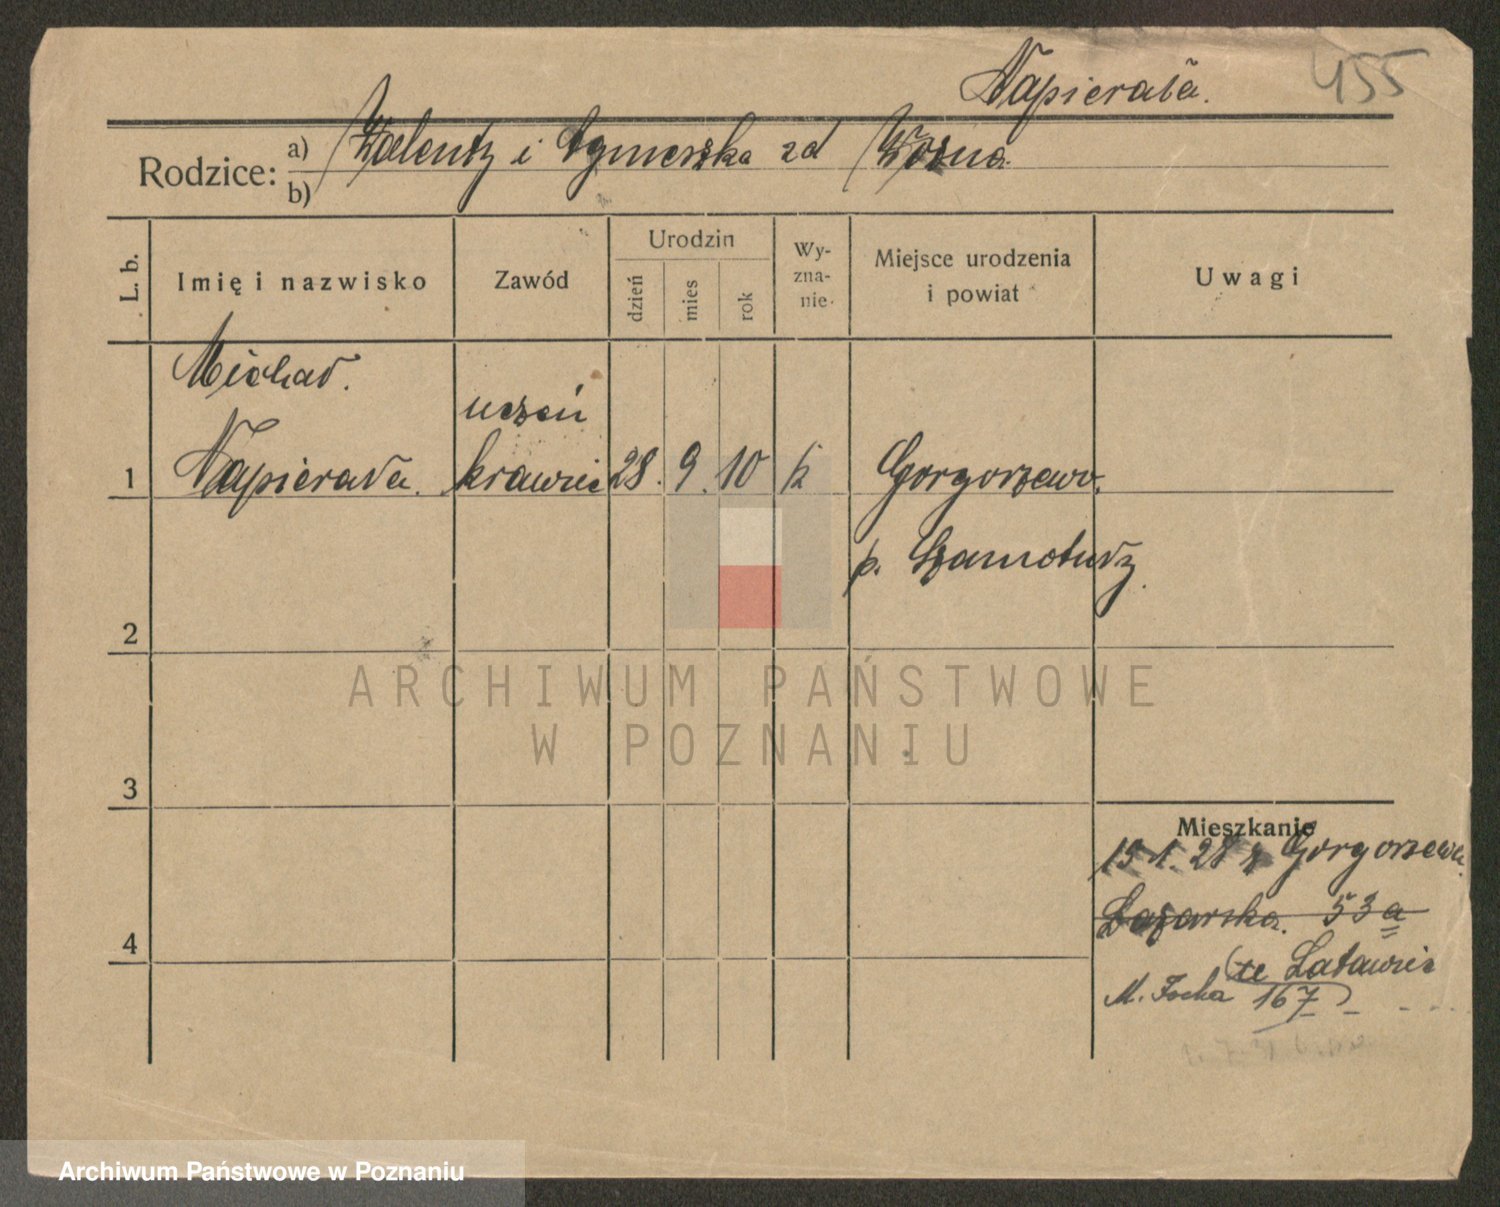 Napierała.
455
Rodzice:
a) Walenty i Agnieszka zd Woźna.
b)
L. b.
Imię i nazwisko
Zawód
Urodzin
dzień
mies
rok
Wy-
zna-
nie
Miejsce urodzenia
i powiat
Uwagi
Michał.
uczeń
1 Napierała. krawiec 28. 9. 10 k Gorgorzewo.
p. Szamotuły.
2
3
4
Mieszkanie
19.1.28 z Gorgorzewa.
Łazarska. 53a
Latawiec
M. Focha 167
ARCHIWUM PAŃSTWOWE
W POZNANIU
Archiwum Państwowe w Poznaniu